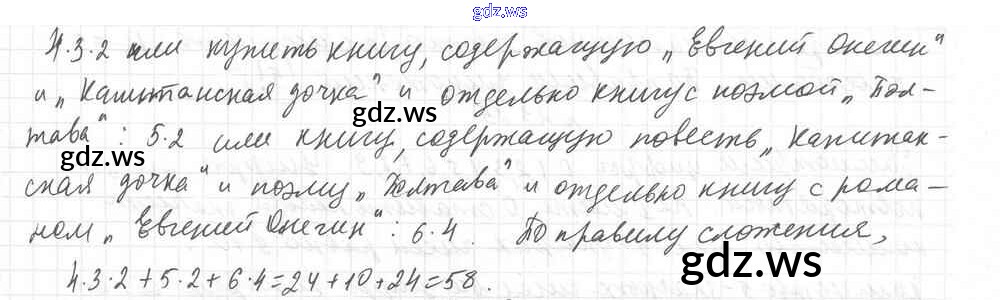 gdz.ws
4.3.2 или купить книгу, содержащую „Евгений Онегин“
и „Капитанская дочка“ и отдельно книгу с поэмой „Пол-
тава“: 5.2 или книгу, содержащую повесть „Капитан-
ская дочка“ и поэму „Полтава“ и отдельно книгу с рома-
ном „Евгений Онегин“: 6.4. По правилу сложения,
4·3·2+5·2+6·4=24+10+24=58.
gdz.ws
gdz.ws